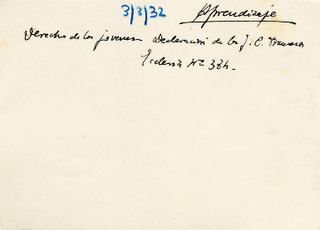 3/3/32 Aprendizaje
Derecho de los jovenes Declaración de la J. C. Francesa
Ecclesia Nº 384.